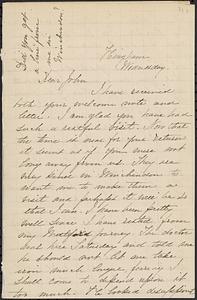 Did you get
a line from
me in
Winchendon?
Hingham
Wednesday
Dear John
I have received
both your welcome note and
letter. I am glad you have had
such a restful visit. Now that
the time is near for your return
it seems as if you were not
long away from us. They are
very kind in Winchendon to
want me to make them a
visit and perhaps it will be so
that I can. I have been pretty
well since I have rested from
my journey. The doctor
was here Saturday and told me
he should not let me take
iron much longer fearing I
shall come to depend upon it
too much. He looked